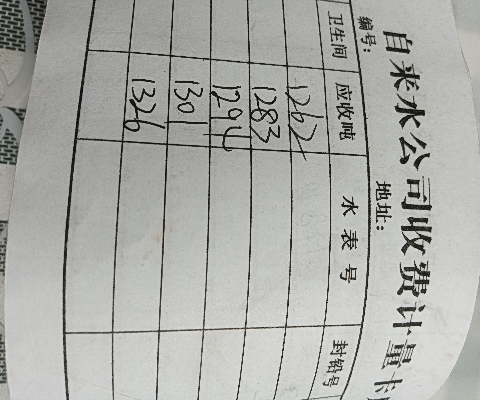 自来水公司收费计量卡
编号: 地址:
卫生间 应收吨 水表号 封铅号
1262
1283
1294
1301
1326